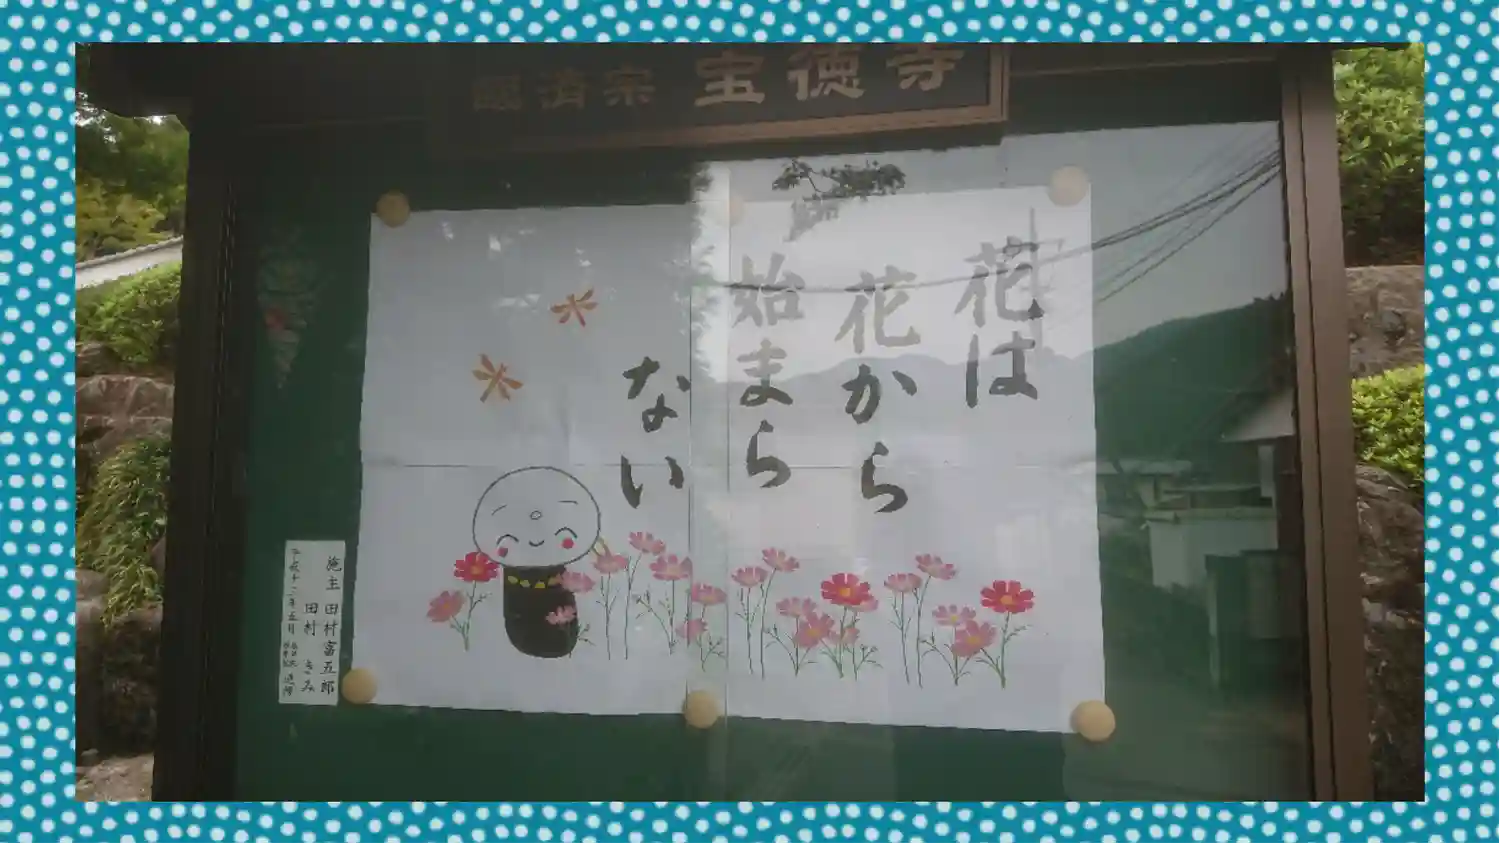 臨済宗 宝徳寺
花は
花から
始まら
ない
施主 田村富五郎
田村 きみ
平成十二年五月